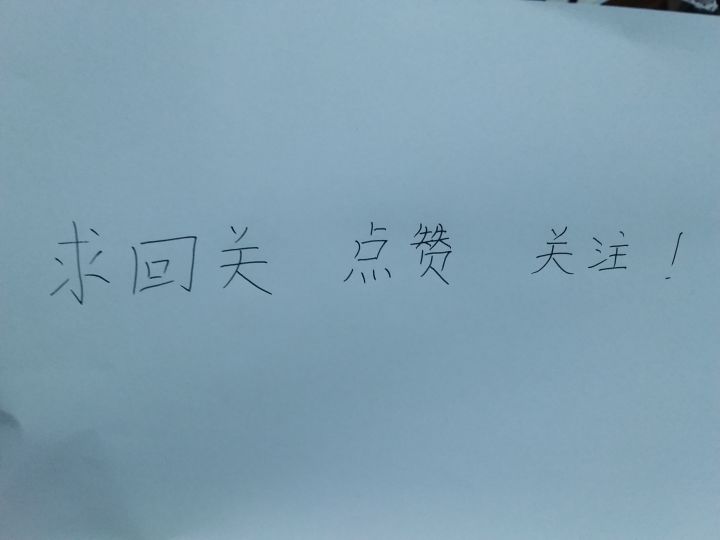 求回关 点赞 关注！